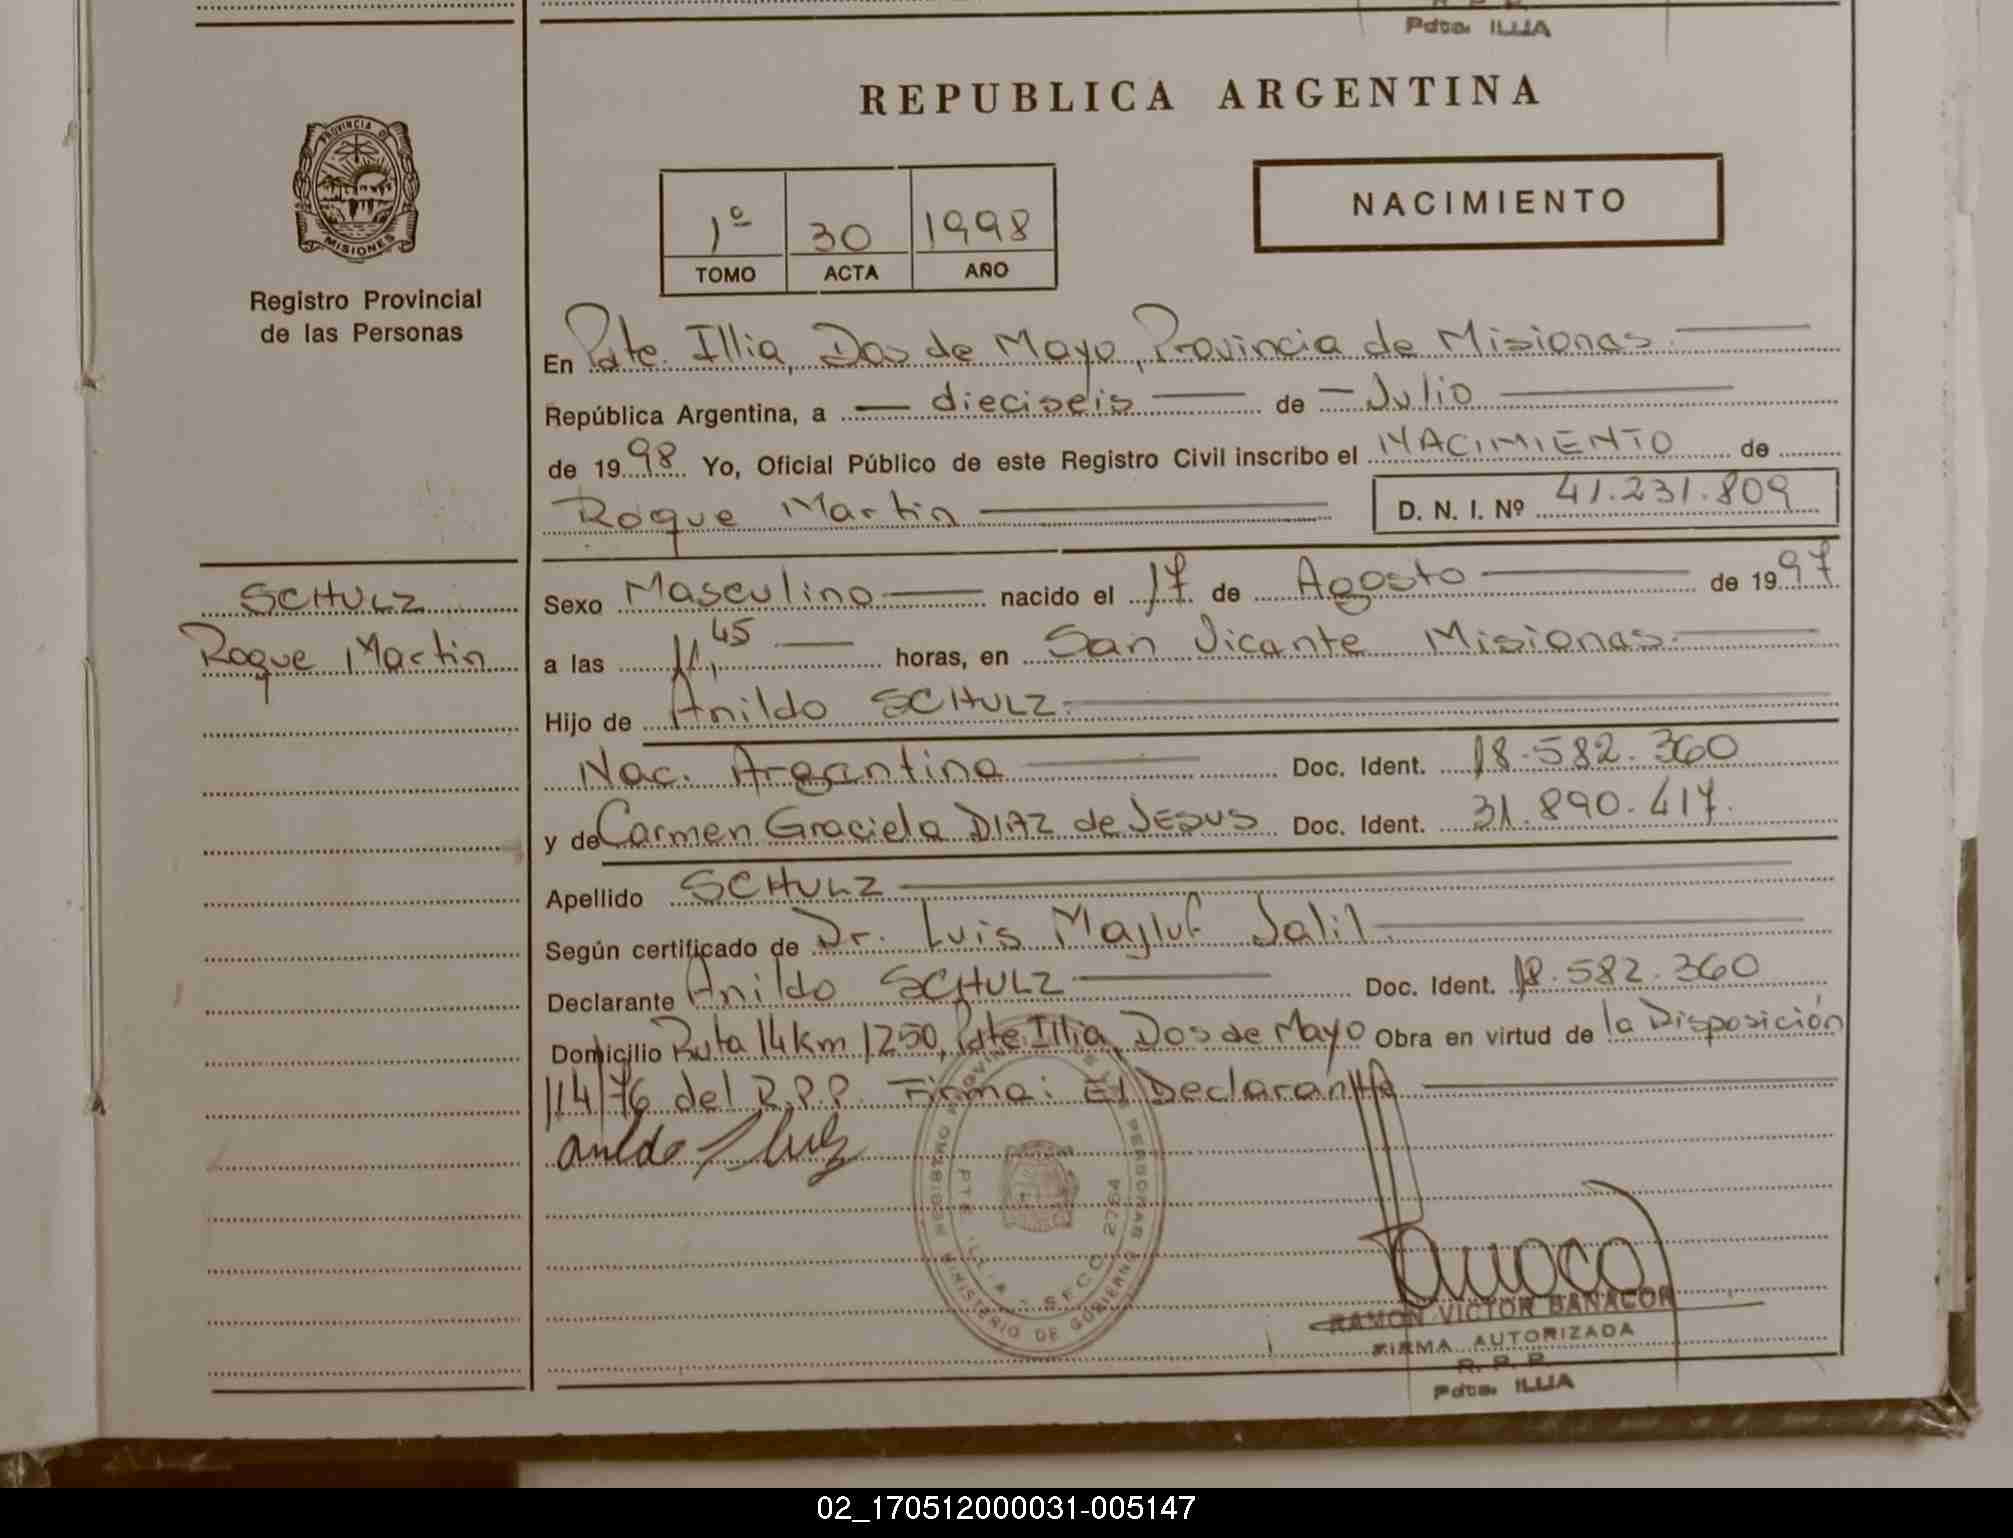 Pdte. ILLIA
REPUBLICA ARGENTINA
PROVINCIA DE
MISIONES
Registro Provincial
de las Personas
1º 30 1998
TOMO ACTA AÑO
NACIMIENTO
En Pdte. Illia, Dos de Mayo, Provincia de Misiones.
República Argentina, a dieciseis de Julio
de 1998 Yo, Oficial Público de este Registro Civil inscribo el NACIMIENTO de
Roque Martin D. N. I. Nº 41.231.809
SCHULZ
Roque Martin
Sexo Masculino nacido el 17 de Agosto de 1997
a las 11,45 horas, en San Vicente Misiones.
Hijo de Anildo SCHULZ.
Nac. Argentina Doc. Ident. 18.582.360
y de Carmen Graciela DIAZ de JESUS Doc. Ident. 31.890.417.
Apellido SCHULZ
Según certificado de Dr. Luis Majluf Jalil.
Declarante Anildo SCHULZ Doc. Ident. 18.582.360
Domicilio Ruta 14 km 1250, Pdte Illia, Dos de Mayo Obra en virtud de la Disposición
114/76 del R.P.P. Firma: El Declarante
REGISTRO PROVINCIAL DE LAS PERSONAS
MINISTERIO DE GOBIERNO
PTE. ILLIA - SECC. 2764
RAMON VICTOR BANACOR
FIRMA AUTORIZADA
R. P. P.
Pdte. ILLIA
02_170512000031-005147